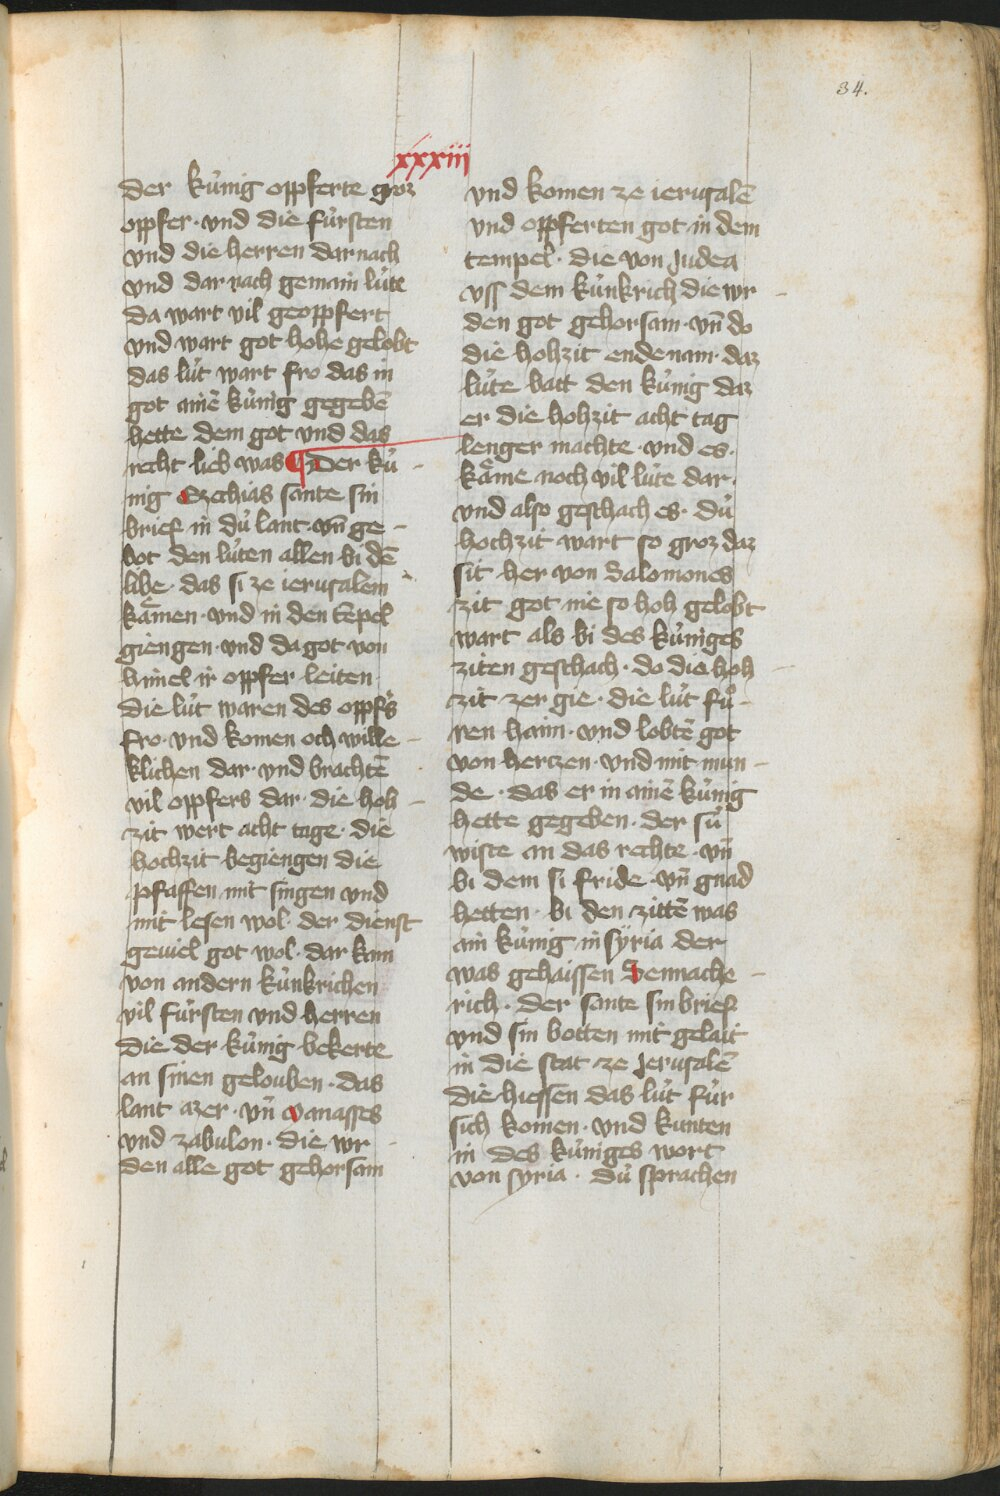 34.
xxxiii
der ku̇nig oppferte groz
oppfer · vnd die fu̇rsten
vnd die herren dar nach
vnd dar nach gemain lu̇te
da wart vil geoppfert
vnd wart got hohe gelobt
das lu̇t wart fro das in
got ainē ku̇nig gegebē
hette dem got vnd das
recht lieb was ¶ Der ku̇
nig Ezechias sante sin
brief in du̇ lant · vn̄ ge -
bot den lu̇ten allen bi dē
libe · das si ze ierusalem
kaͤmen · vnd in den tēpel
giengen · vnd da got von
himel ir oppfer leiten
die lu̇t waren des oppfs
fro · vnd komen och wille -
klichen dar · vnd brachtē
vil oppfers dar · die hoh -
zit wert acht tage · die
hochzit begiengen die
pfaffen mit singen vnd
mit lesen wol · der dienst
geuiel got wol · dar kam
von andern ku̇nkrichen
vil fu̇rsten vnd herren
die der ku̇nig bekerte
an sinen gelouben · das
lant azer · vn̄ Manasses
vnd zabulon · die wr -
den alle got gehorsam
vnd komen ze ierusalē
vnd oppferten got in dem
tempel · die von Judea
vss dem ku̇nkrich die wr -
den got gehorsam · vn̄ do
die hohzit ende nam · daz
lu̇te batt den ku̇nig daz
er die hohzit acht tag
lenger machte · vnd es ·
kaͤme noch vil lu̇te dar ·
vnd also geschach es · du̇
hochzit wart so groz daz
sit her von Salomones
zit got nie so hoh gelobt
wart als bi des ku̇niges
ziten geschach · do die hoh -
zit zer gie · die lu̇t fuͦ -
ren haim · vnd lobtē got
von herczen · vnd mit mun -
de · das er in ainē ku̇nig
hette gegeben · der su̇
wiste an das rechte · vn̄
bi dem si fride · vn̄ gnad
hetten · bi den zittē was
ain ku̇nig in sÿria der
was gehaissen Sennache -
rich · der sante sin brief
vnd sin botten mit gelait
in die stat ze Jerusalē
die hiessen das lu̇t fu̇r
sich komen · vnd kunten
in des ku̇niges wort
von syria · du̇ sprachen